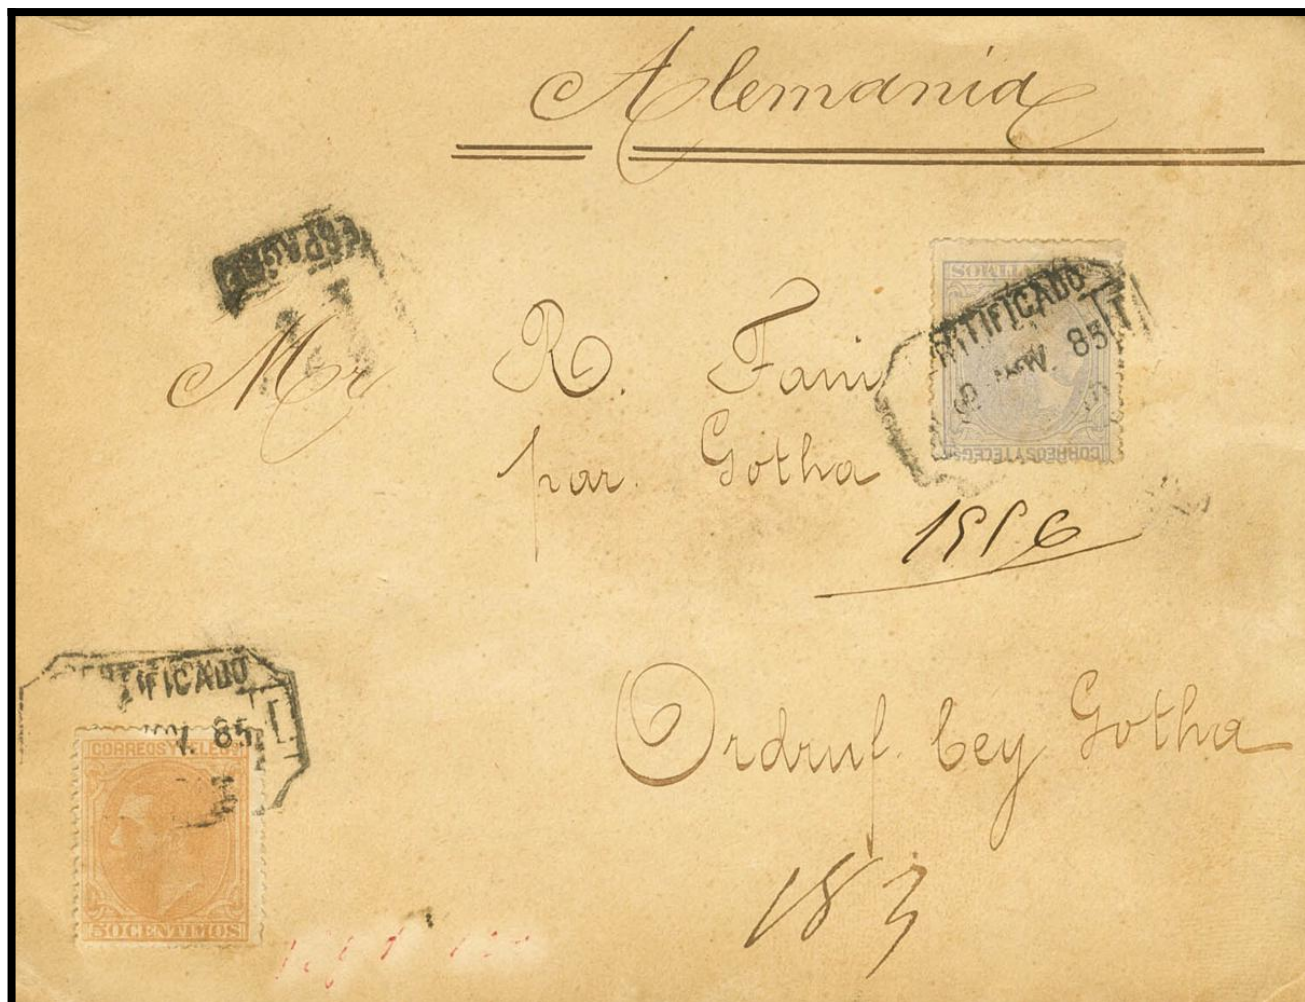 Alemania
ESPAGNE
Mr R.
par. Gotha
CERTIFICADO
NOV. 85
CORREOS Y TELEGS
CERTIFICADO
V. 85
CORREOS Y TELEGS
50 CENTIMOS
Ordruf. bey Gotha
183